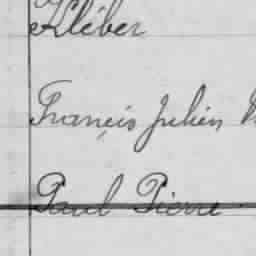 Kléber
Francis Julien
Paul Pierre